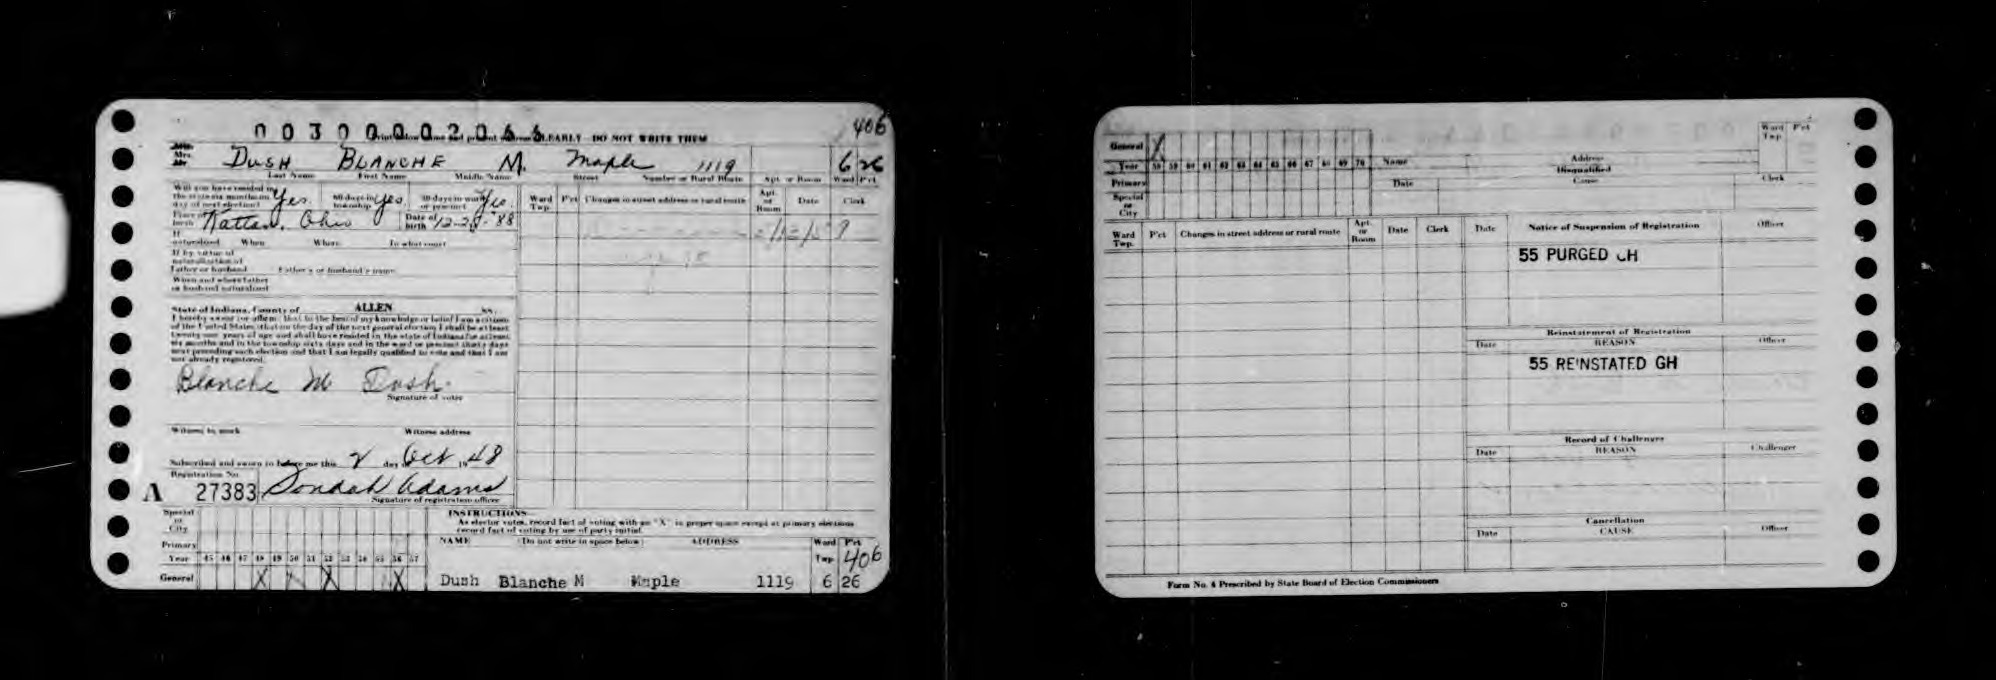 406
Print CLEARLY - DO NOT WRITE THEM
Mrs. DUSH BLANCHE M. Maple 1119 6 26
Last Name First Name Middle Name Street Number or Rural Route Apt. or Room Ward Pct
Will you have resided in the state six months on day of next election? Yes 60 days in township Yes 30 days in ward or precinct Yes.
Ward Twp. P'ct Changes in street address or rural route Apt. or Room Date Clerk
Place of birth Ohio Date of birth 12-28-'88
If naturalized When Where In what court
If by virtue of naturalization of
Father or husband Father's or husband's name
When and where father or husband naturalized
State of Indiana, County of ALLEN ss.
I hereby swear (or affirm) that to the best of my knowledge or belief I am a citizen
of the United States, that on the day of the next general election I shall be at least
twenty-one years of age and shall have resided in the state of Indiana for at least
six months and in the township sixty days and in the ward or precinct thirty days
next preceding such election and that I am legally qualified to vote and that I am
not already registered.
Blanche M Dush
Signature of voter
Witness to mark Witness address
Subscribed and sworn to before me this 2 day of Oct 1948
Registration No.
A 27383 Adams
Signature of registration officer
Special or City
Primary
Year 45 46 47 48 49 50 51 52 53 54 55 56 57
General X X X
INSTRUCTIONS
As elector votes, record fact of voting with an "X" in proper space except at primary elections
record fact of voting by use of party initial.
NAME (Do not write in space below) ADDRESS Ward Twp. Pct
406
Dush Blanche M Maple 1119 6 26
General X
Year 58 59 60 61 62 63 64 65 66 67 68 69 70
Primary
Special or City
Name Address Ward Twp. P'ct
Disqualified
Date Cause Clerk
Ward Twp. P'ct Changes in street address or rural route Apt. or Room Date Clerk
Date Notice of Suspension of Registration Officer
55 PURGED GH
Reinstatement of Registration
Date REASON Officer
55 REINSTATED GH
Record of Challenges
Date REASON Challenger
Cancellation
Date CAUSE Officer
Form No. 4 Prescribed by State Board of Election Commissioners